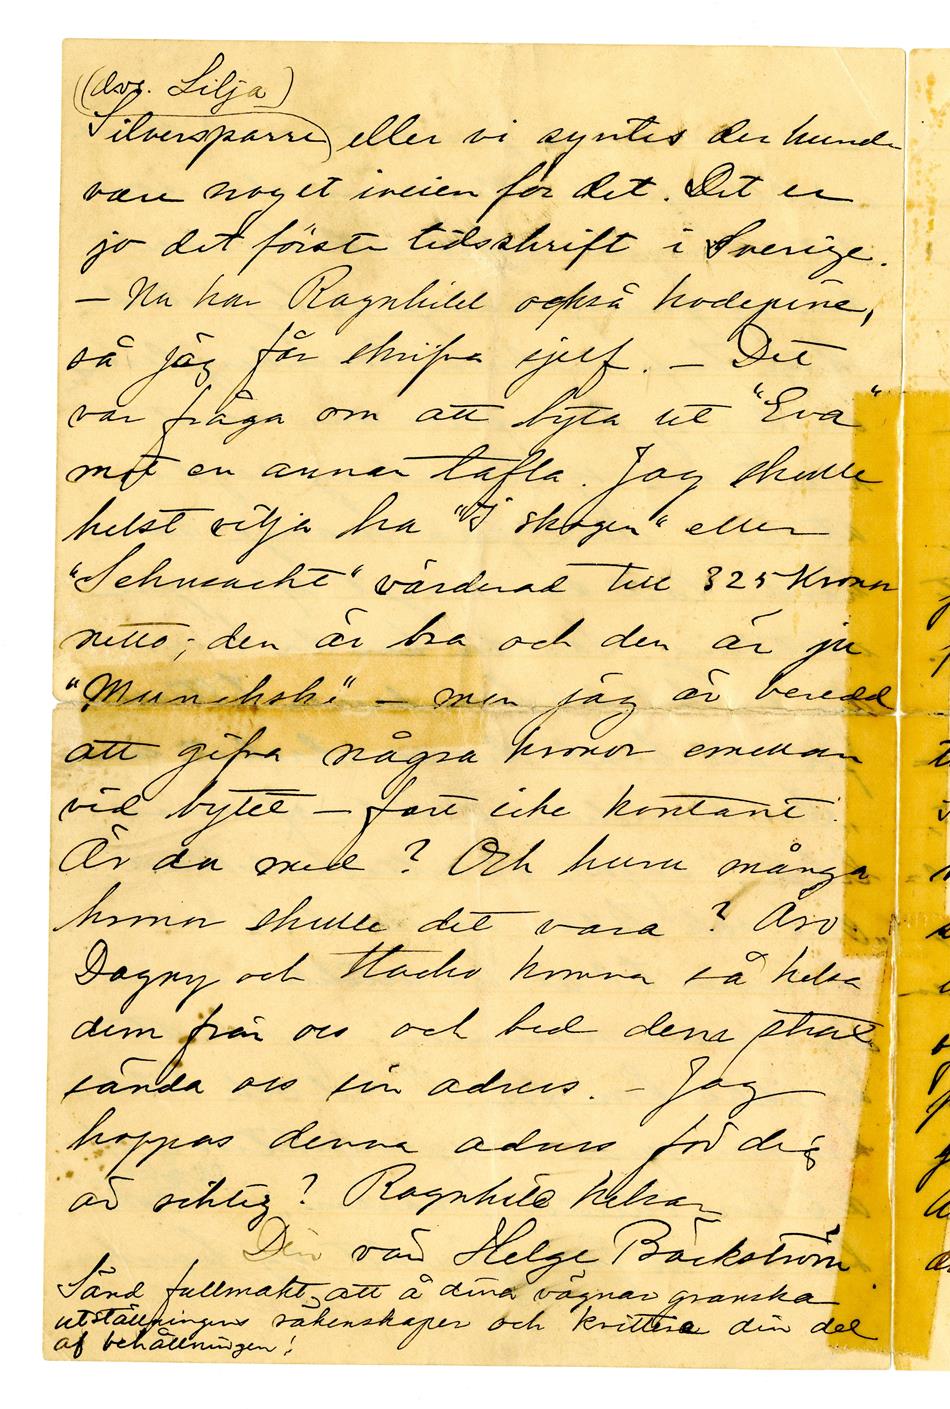 (dvs. Lilja)
Silversparre) eller vi syntes der kunde
være noget iveien for det. Det er
jo det förste tidsskrift i Sverige.
– Nu har Ragnhild också hodepine,
så jag får skrifva sjelf. – Det
var fråga om att byta ut "Eva"
mot en annan tafla. Jag skulle
helst vilja ha "I skogen" eller
"Sehnsucht" värderad till 325 Kronor
netto; den är bra och den är ju
"Munchsk" – men jag är beredd
att gifva några kronor emellan
vid bytet – fast icke kontant.
Är du med? Och huru många
kronor skulle det vara? Om
Dagny och Stachu komma så helsa
dem från oss och bed dem strax
sända oss sin adress. – Jag
hoppas denna adress för dig
är riktig? Ragnhild helsar
Din vän Helge Bäckström.
Sänd fullmakt att å dina vägnar granska
utställningens räkenskaper och kvittera din del
af behållningen!